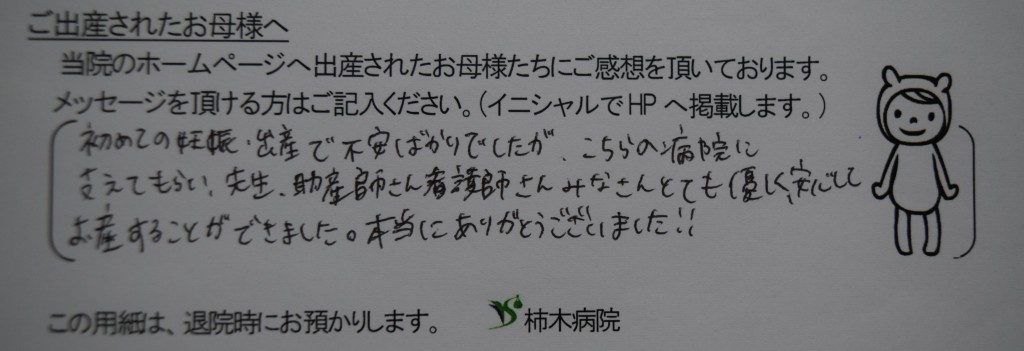 ご出産されたお母様へ
当院のホームページへ出産されたお母様たちにご感想を頂いております。
メッセージを頂ける方はご記入ください。（イニシャルでHPへ掲載します。）
初めての妊娠・出産で不安ばかりでしたが、こちらの病院に
支えてもらい、先生、助産師さん看護師さんみなさんとても優しく、安心して
お産することができました。本当にありがとうございました!!
この用紙は、退院時にお預かりします。 柿木病院